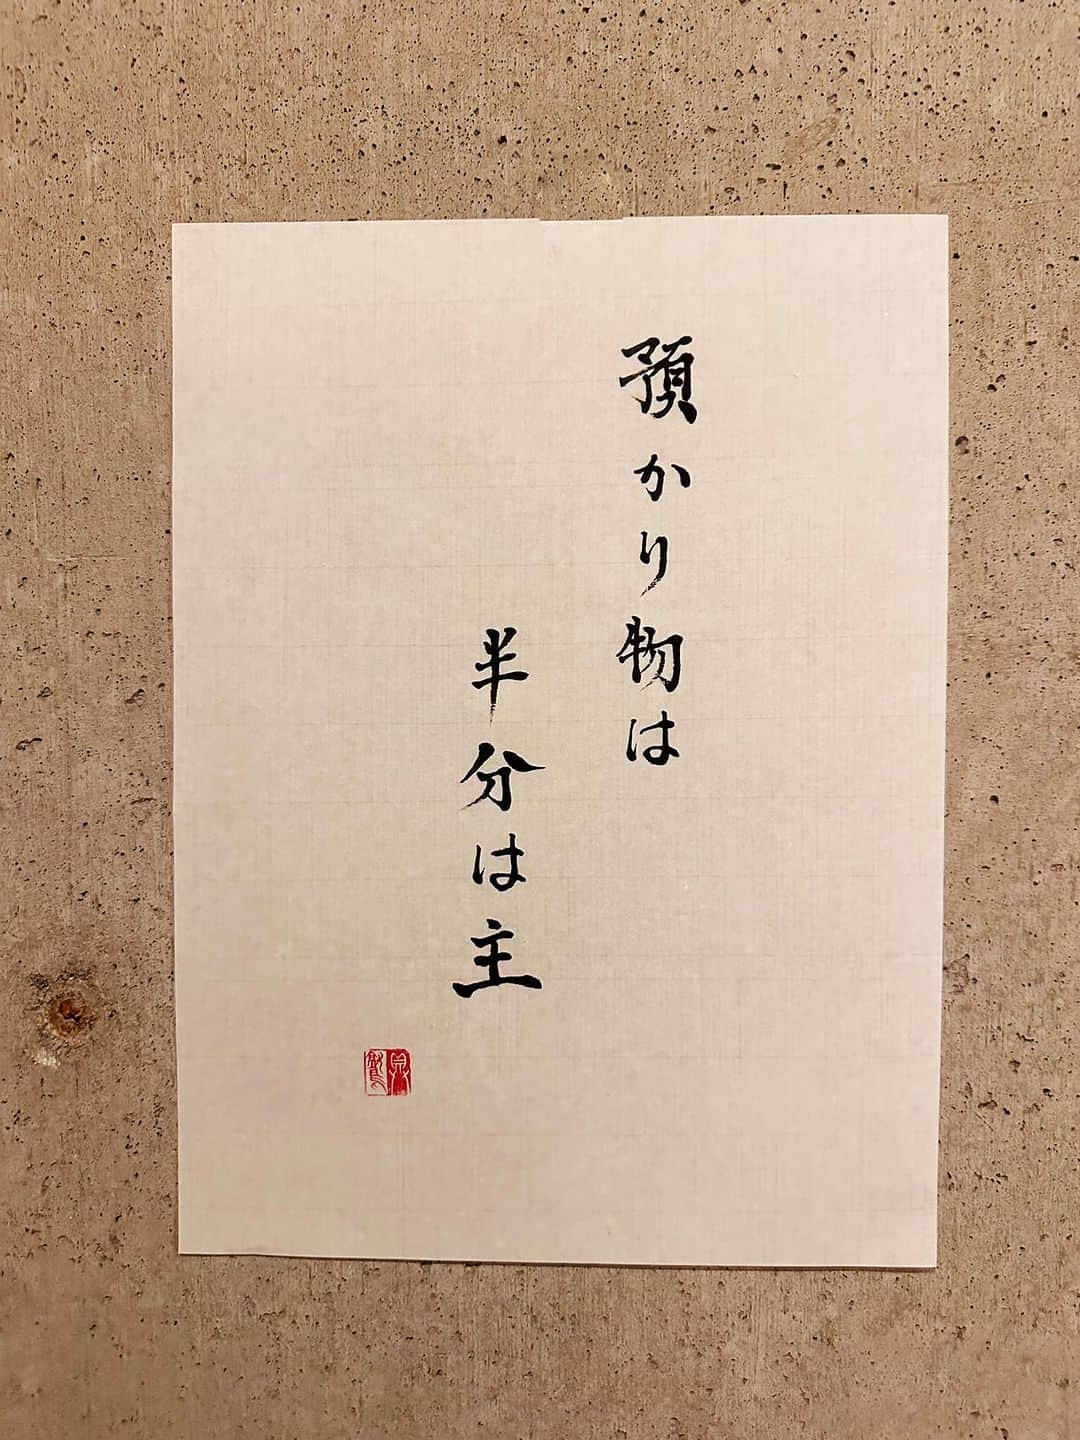 預かり物は
半分は主